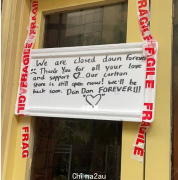 We are closed down forever
Thank you for all your love
and support ♡. Our carlton
store is still open now! We'll be
back soon. Don Don FOREVER!!!
FRAGILE
FRAGILE
FRAGILE
FRAGILE
FRAG
Chilma2au